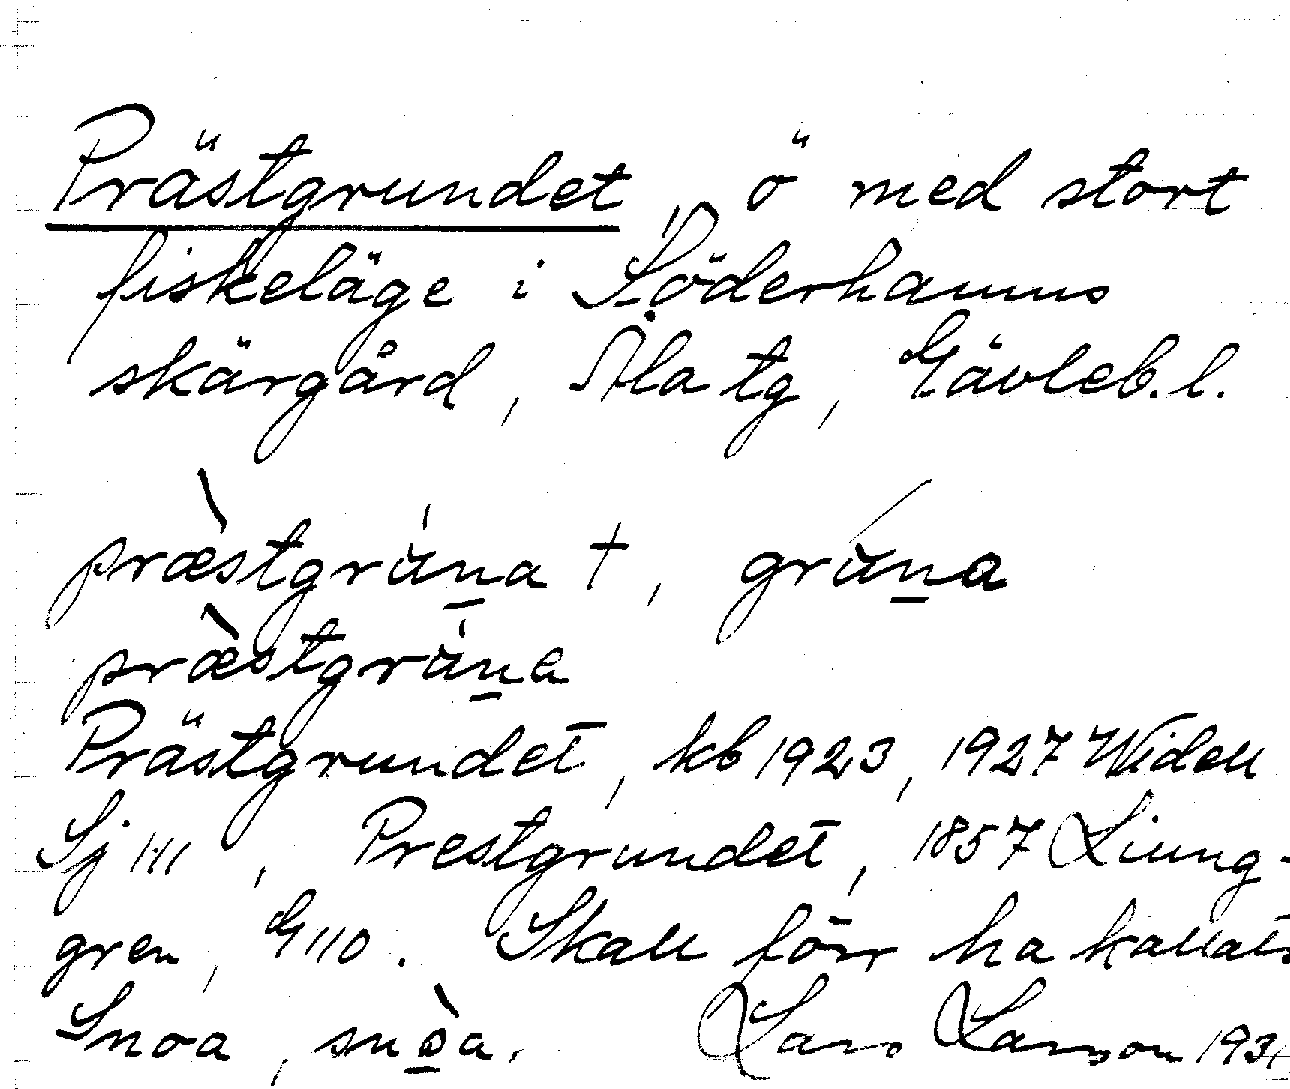 Prästgrundet, ö med stort
fiskeläge i Söderhamns
skärgård, Ala tg, Gävleb. l.
præ̀stgrúṉa †, grúṉa
præ̀stgrúṉa
Prästgrundet, kb 1923, 1927 Widell
Sj 111, Prestgrundet, 1857 Ljung-
gren, G 110. Skall förr ha kallats
Snoa, snò̱a. Lars Larsson